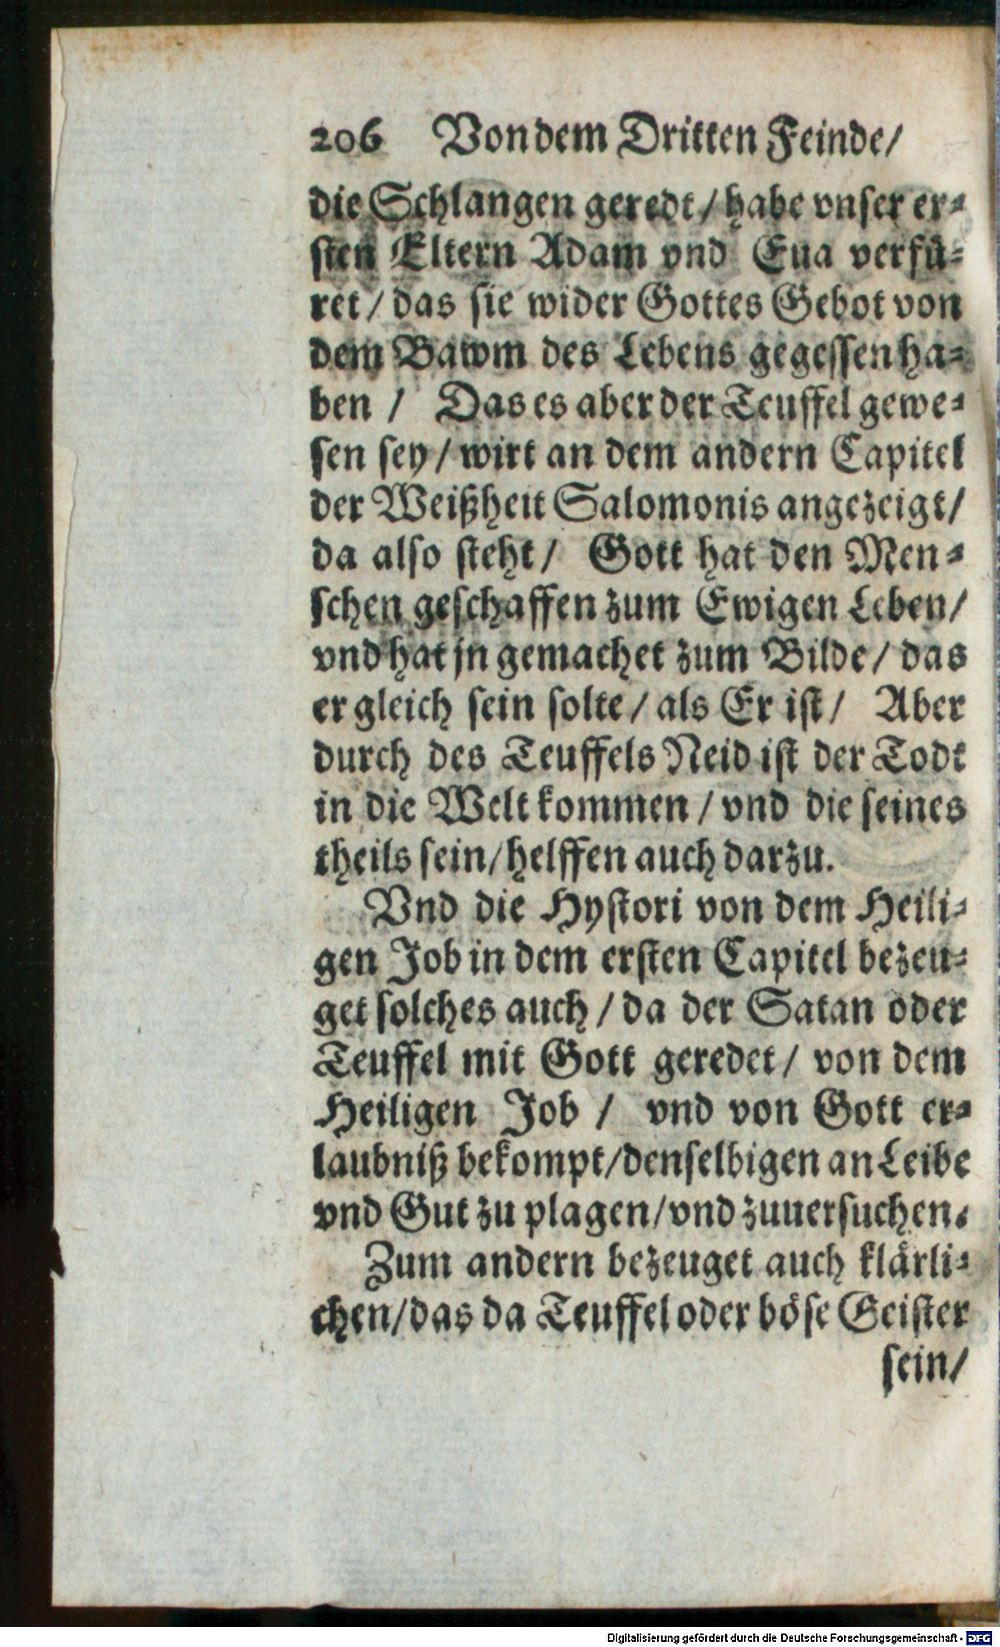 206 Von dem Dritten Feinde/
die Schlangen geredt/ habe vnser er⸗
sten Eltern Adam vnd Eua verfuͤ⸗
ret/ das sie wider Gottes Gebot von
dem Bawm des Lebens gegessen ha⸗
ben / Das es aber der Teuffel gewe⸗
sen sey/ wirt an dem andern Capitel
der Weißheit Salomonis angezeigt/
da also steht/ Gott hat den Men⸗
schen geschaffen zum Ewigen Leben/
vnd hat jn gemachet zum Bilde/ das
er gleich sein solte/ als Er ist/ Aber
durch des Teuffels Neid ist der Todt
in die Welt kommen/ vnd die seines
theils sein/ helffen auch darzu.
Vnd die Hystori von dem Heili⸗
gen Job in dem ersten Capitel bezeu⸗
get solches auch/ da der Satan oder
Teuffel mit Gott geredet/ von dem
Heiligen Job / vnd von Gott er⸗
laubniß bekompt/ denselbigen an Leibe
vnd Gut zu plagen/ vnd zuuersuchen.
Zum andern bezeuget auch klaͤrli⸗
chen/ das da Teuffel oder boͤse Geister
sein/
Digitalisierung gefördert durch die Deutsche Forschungsgemeinschaft - DFG